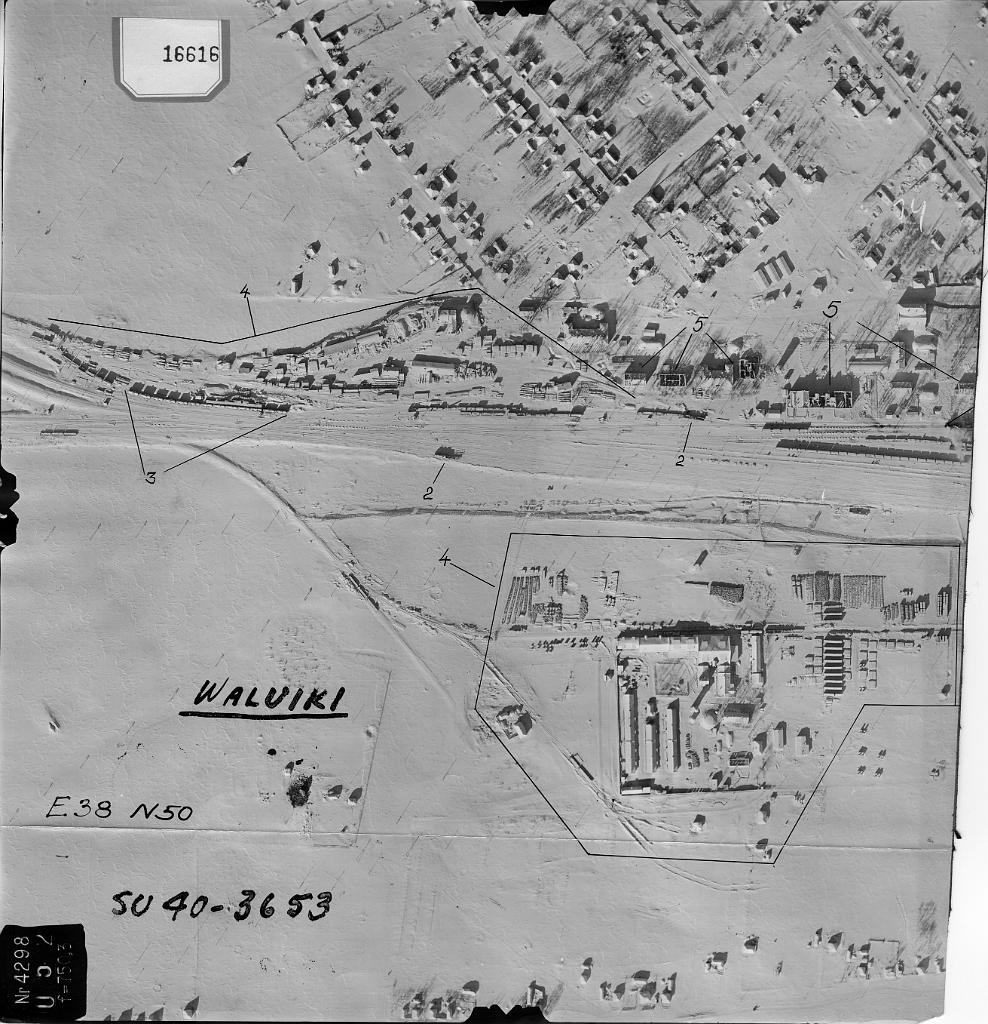 16616
14
4
5
5
3
2
2
4
WALUIKI
E.38 N50
SU 40-3653
Nr 4298
f=750,3